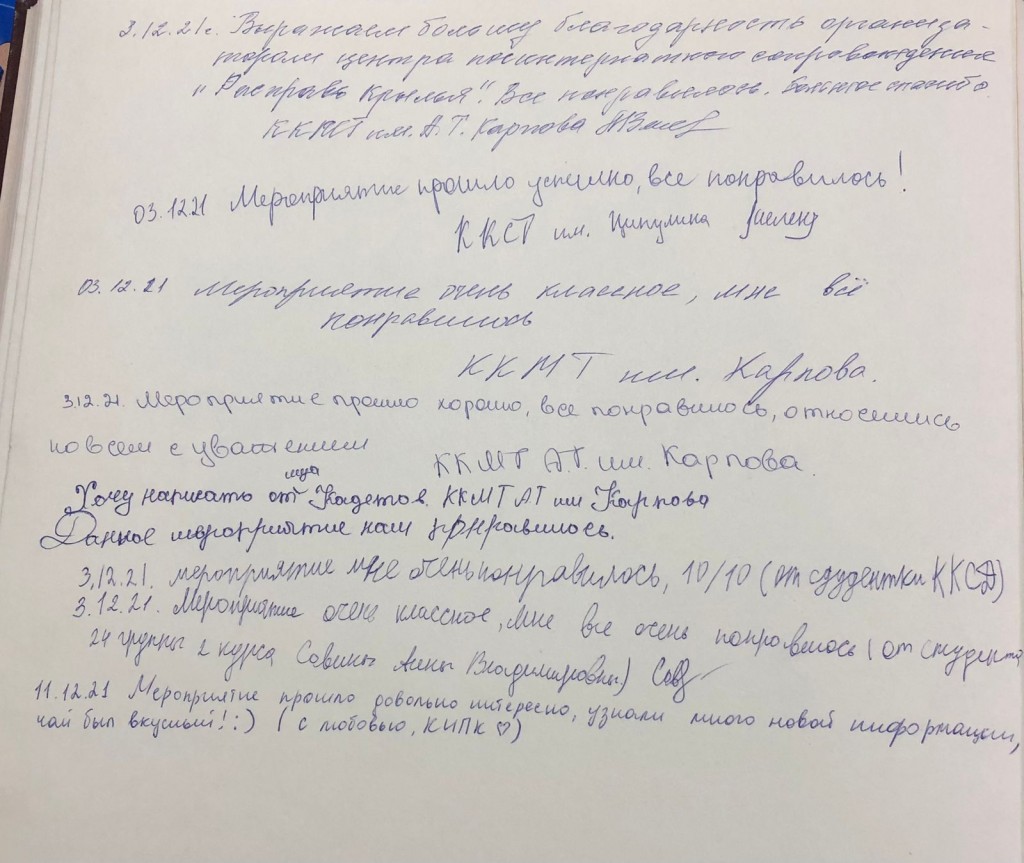 3.12.21г. Выражаем большую благодарность организа-
торам центра постинтернатного сопровождения
"Расправь крылья". Все понравилось. Большое спасибо
ККМТ им. А.Т. Карпова
03.12.21 Мероприятие прошло успешно, все понравилось!
ККСТ им. Ципулина
03.12.21 Мероприятие очень классное, мне всё
понравилось
ККМТ им. Карпова.
3.12.21. Мероприятие прошло хорошо, все понравилось, относились
ко всем с уважением
ККМТ А.Т. им. Карпова.
Хочу написать от лица Кадетов. ККМТ АТ им Карпова
Данное мероприятие нам понравилось.
3.12.21. мероприятие мне очень понравилось, 10/10 (от студентки
3.12.21. Мероприятие очень классное, мне все очень понравилось (от студента
24 группы 2 курса Савины Анны Владимировны)
11.12.21 Мероприятие прошло довольно интересно, узнали много новой информации,
чай был вкусный! :) (с любовью, КИПК ♡)